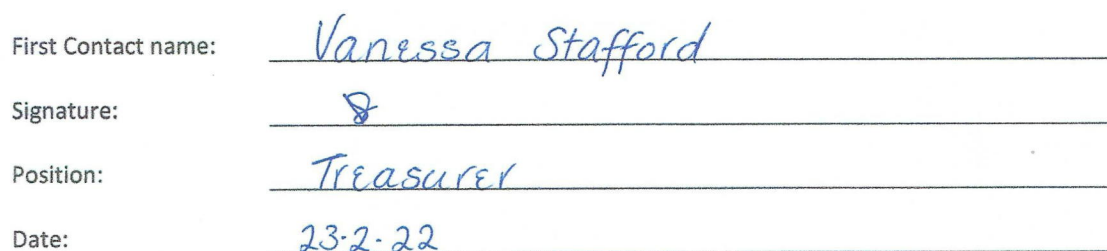 First Contact name: Vanessa Stafford
Signature:
Position: Treasurer
Date: 23-2-22